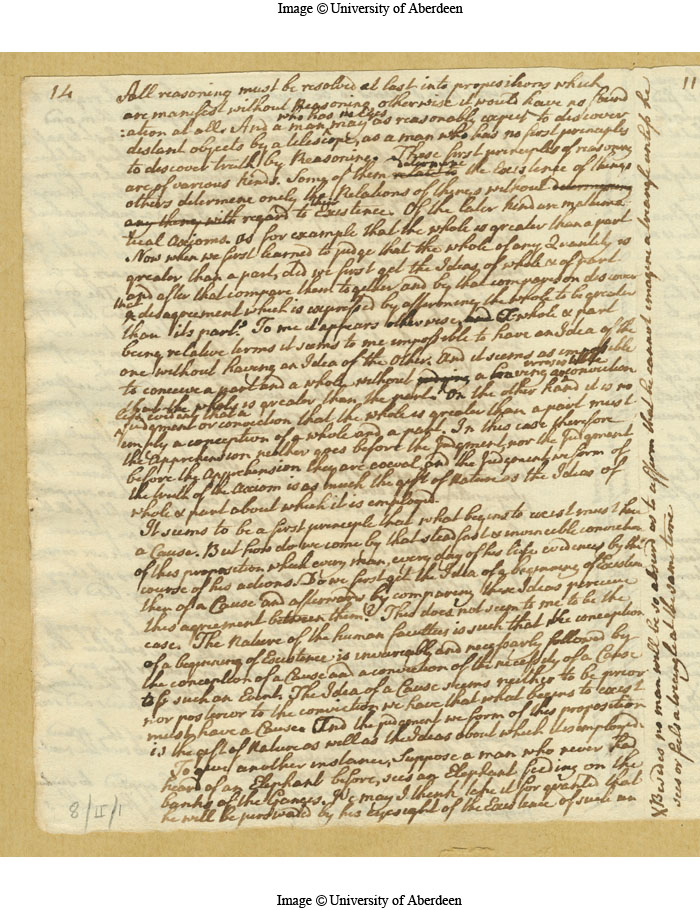 Image © University of Aberdeen
14
11
All reasoning must be resolved at last into propositions which
are manifest without Reasoning, otherwise it would have no found
:ation at all. And a man who has no eyes may as reasonably expect to discover
distant objects by a telescope, as a man who has no first principles
to discover truth by Reasoning. These first principles of reasoning
are of various kinds. Some of them determine the Existence of things
others determine onely the Relations of things without determining
any thing with regard to their Existence. Of the later kind are mathema
tical Axioms. As for example that the whole is greater than a part
Now when we first learned to judge that the whole of any Quantity is
greater than a part, did we first get the Ideas of whole & of part
and after that compare them together and by that comparison discover
that disagreement which is expressed by affirming the whole to be greater
than its part? To me it appears otherwise, whole & part
being relative terms it seems to me impossible to have an Idea of the
one without having an Idea of the Other. And it seems as impossible
to conceive a part and a whole without a conviction
that the whole is greater than the part. On the other hand it is no
less evident that a
judgment or conviction that the whole is greater than a part must
imply a conception of a whole and a part. In this case therefore
the Apprehension neither goes before the Judgment, nor the Judgment
before the Apprehension they are coeval, and the Judgment we form of
the truth of the Axiom is as much the gift of Nature as the Ideas of
whole & part about which it is employed.
It seems to be a first principle that what begins to exist must have
a Cause. But how do we come by that stedfast & invincible conviction
of this proposition which every man, every day of his life evidences by the
course of his actions. Do we first get the Idea of a beginning of Existence
then of a Cause and afterwards by comparing these Ideas perceive
this agreement between them? This does not seem to me to be the
case. The Nature of the human faculties is such that the conception
of a beginning of Existence is invariably and necessarly followed by
the conception of a Cause and a conviction of the necessity of a Cause
to such an Event. The Idea of a Cause seems neither to be prior
nor posterior to the conviction we have that what begins to exist
must have a Cause. And the judgment we form of this proposition
is the gift of Nature as well as the Ideas about which it is employed.
To give another instance, Suppose a man who never had
heard of an Elephant before, sees an Elephant feeding on the
banks of the Ganges. We may I think take it for granted that
he will be perswaded by his Eyesight of the Existence of such an
X Besides no man will be so absurd as to affirm that he cannot imagine a triangle unless he
sees or feels a triangle at the same time
8/II/1
Image © University of Aberdeen